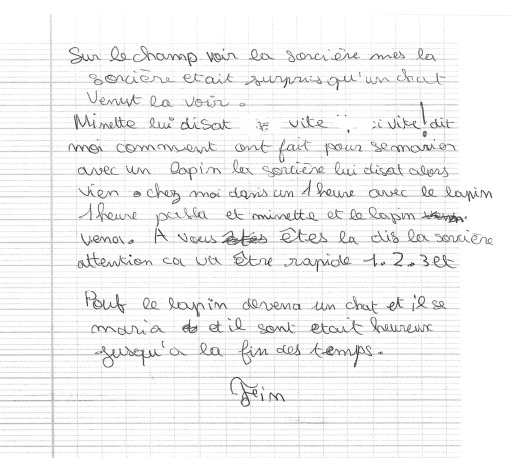 Sur le champ voir la sorcière mes la
sorcière etait surpris qu'un chat
Venut la voir.
Minette lui disat vite vite! dit
moi comment ont fait pour se marier
avec un lapin la sorcière lui disat alors
vien chez moi dans un 1 heure avec le lapin
1 heure passa et minette et le lapin
vena. A vous êtes la dis la sorcière
attention ca va Être rapide 1.2.3 et
Pouf le lapin devena un chat et il se
maria et il sont etait heureux
jusqu'a la fin des temps.
Fein